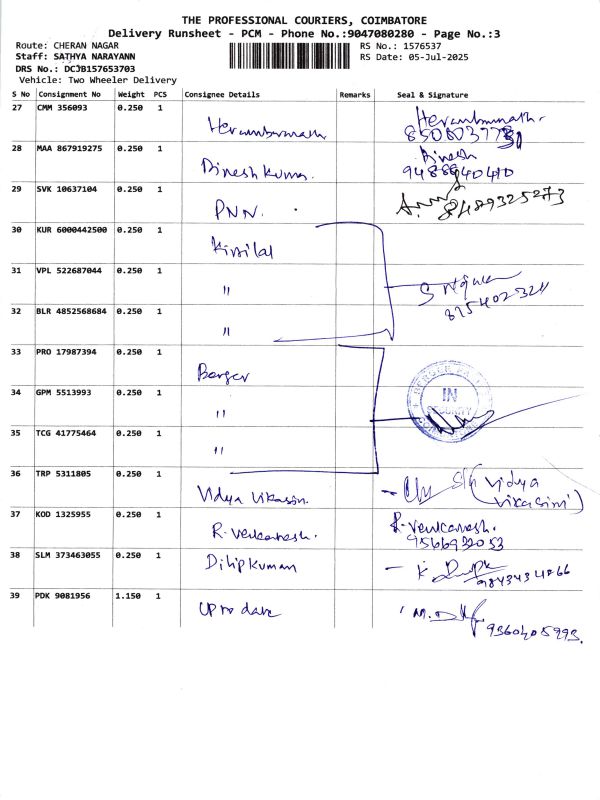 THE PROFESSIONAL COURIERS, COIMBATORE
Delivery Runsheet - PCM - Phone No.:9047080280 - Page No.:3
Route: CHERAN NAGAR RS No.: 1576537
Staff: SATHYA NARAYANN RS Date: 05-Jul-2025
DRS No.: DCJB157653703
Vehicle: Two Wheeler Delivery
S No Consignment No Weight PCS Consignee Details Remarks Seal & Signature
27 CMM 356093 0.250 1 Herambarnath
28 MAA 867919275 0.250 1 Dinesh Kumar. Dinesh
9488940410
29 SVK 10637104 0.250 1 PNN.
8489325273
30 KUR 6000442500 0.250 1 Kirilal
31 VPL 522687044 0.250 1 "
32 BLR 4852568684 0.250 1 "
33 PRO 17987394 0.250 1 Berger
34 GPM 5513993 0.250 1 " IN
SECURITY
35 TCG 41775464 0.250 1 "
36 TRP 5311805 0.250 1 Vidya Vikasini. (Vidya
Vikasini)
37 KOD 1325955 0.250 1 R. Venkatesh. R. Venkatesh.
9566932053
38 SLM 373463055 0.250 1 Dilip Kumar
39 PDK 9081956 1.150 1 Up to date
9360405993.